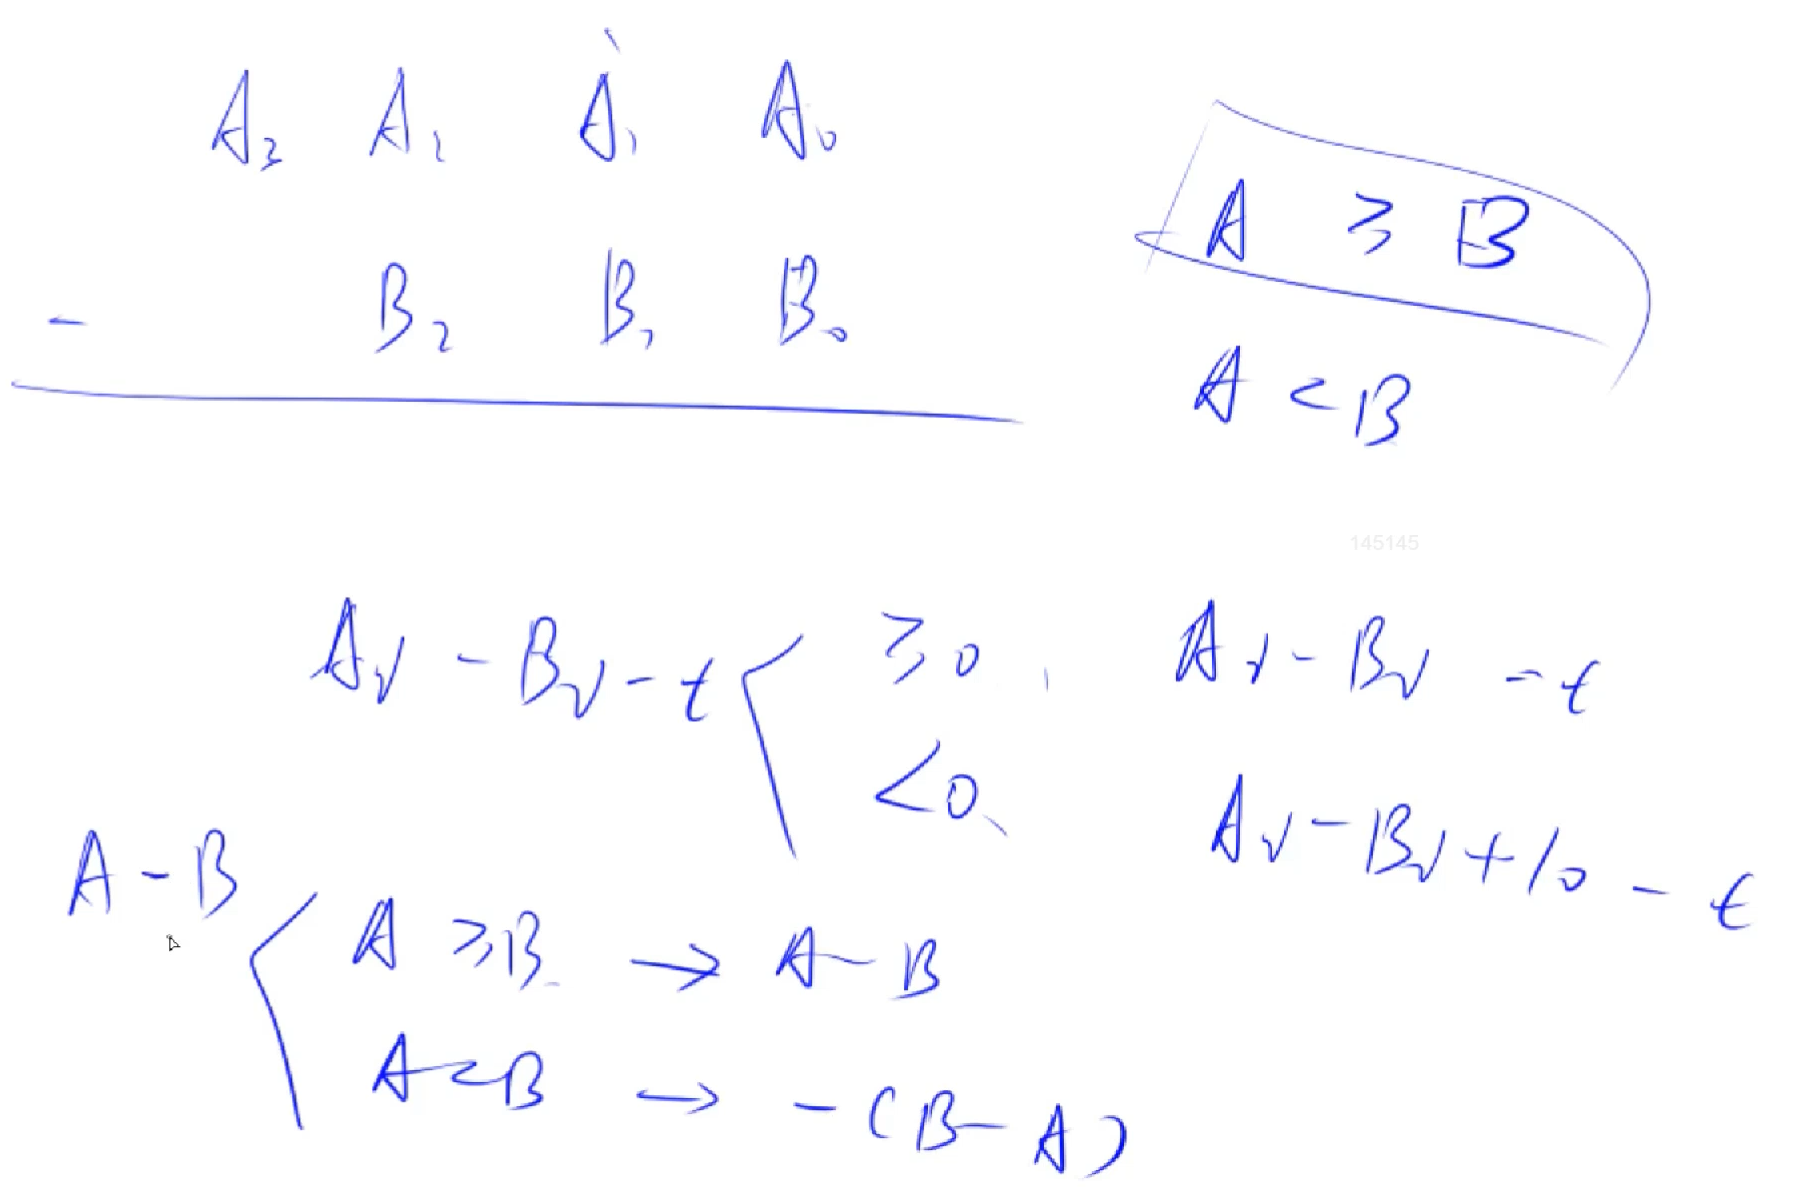 A₃ A₂ A₁ A₀
- B₂ B₁ B₀
A ≥ B
A < B
145145
Ai - Bi - t
≥0, Ai - Bi - t
<0, Ai - Bi + 10 - t
A - B
A ≥ B → A - B
A < B → - (B - A)